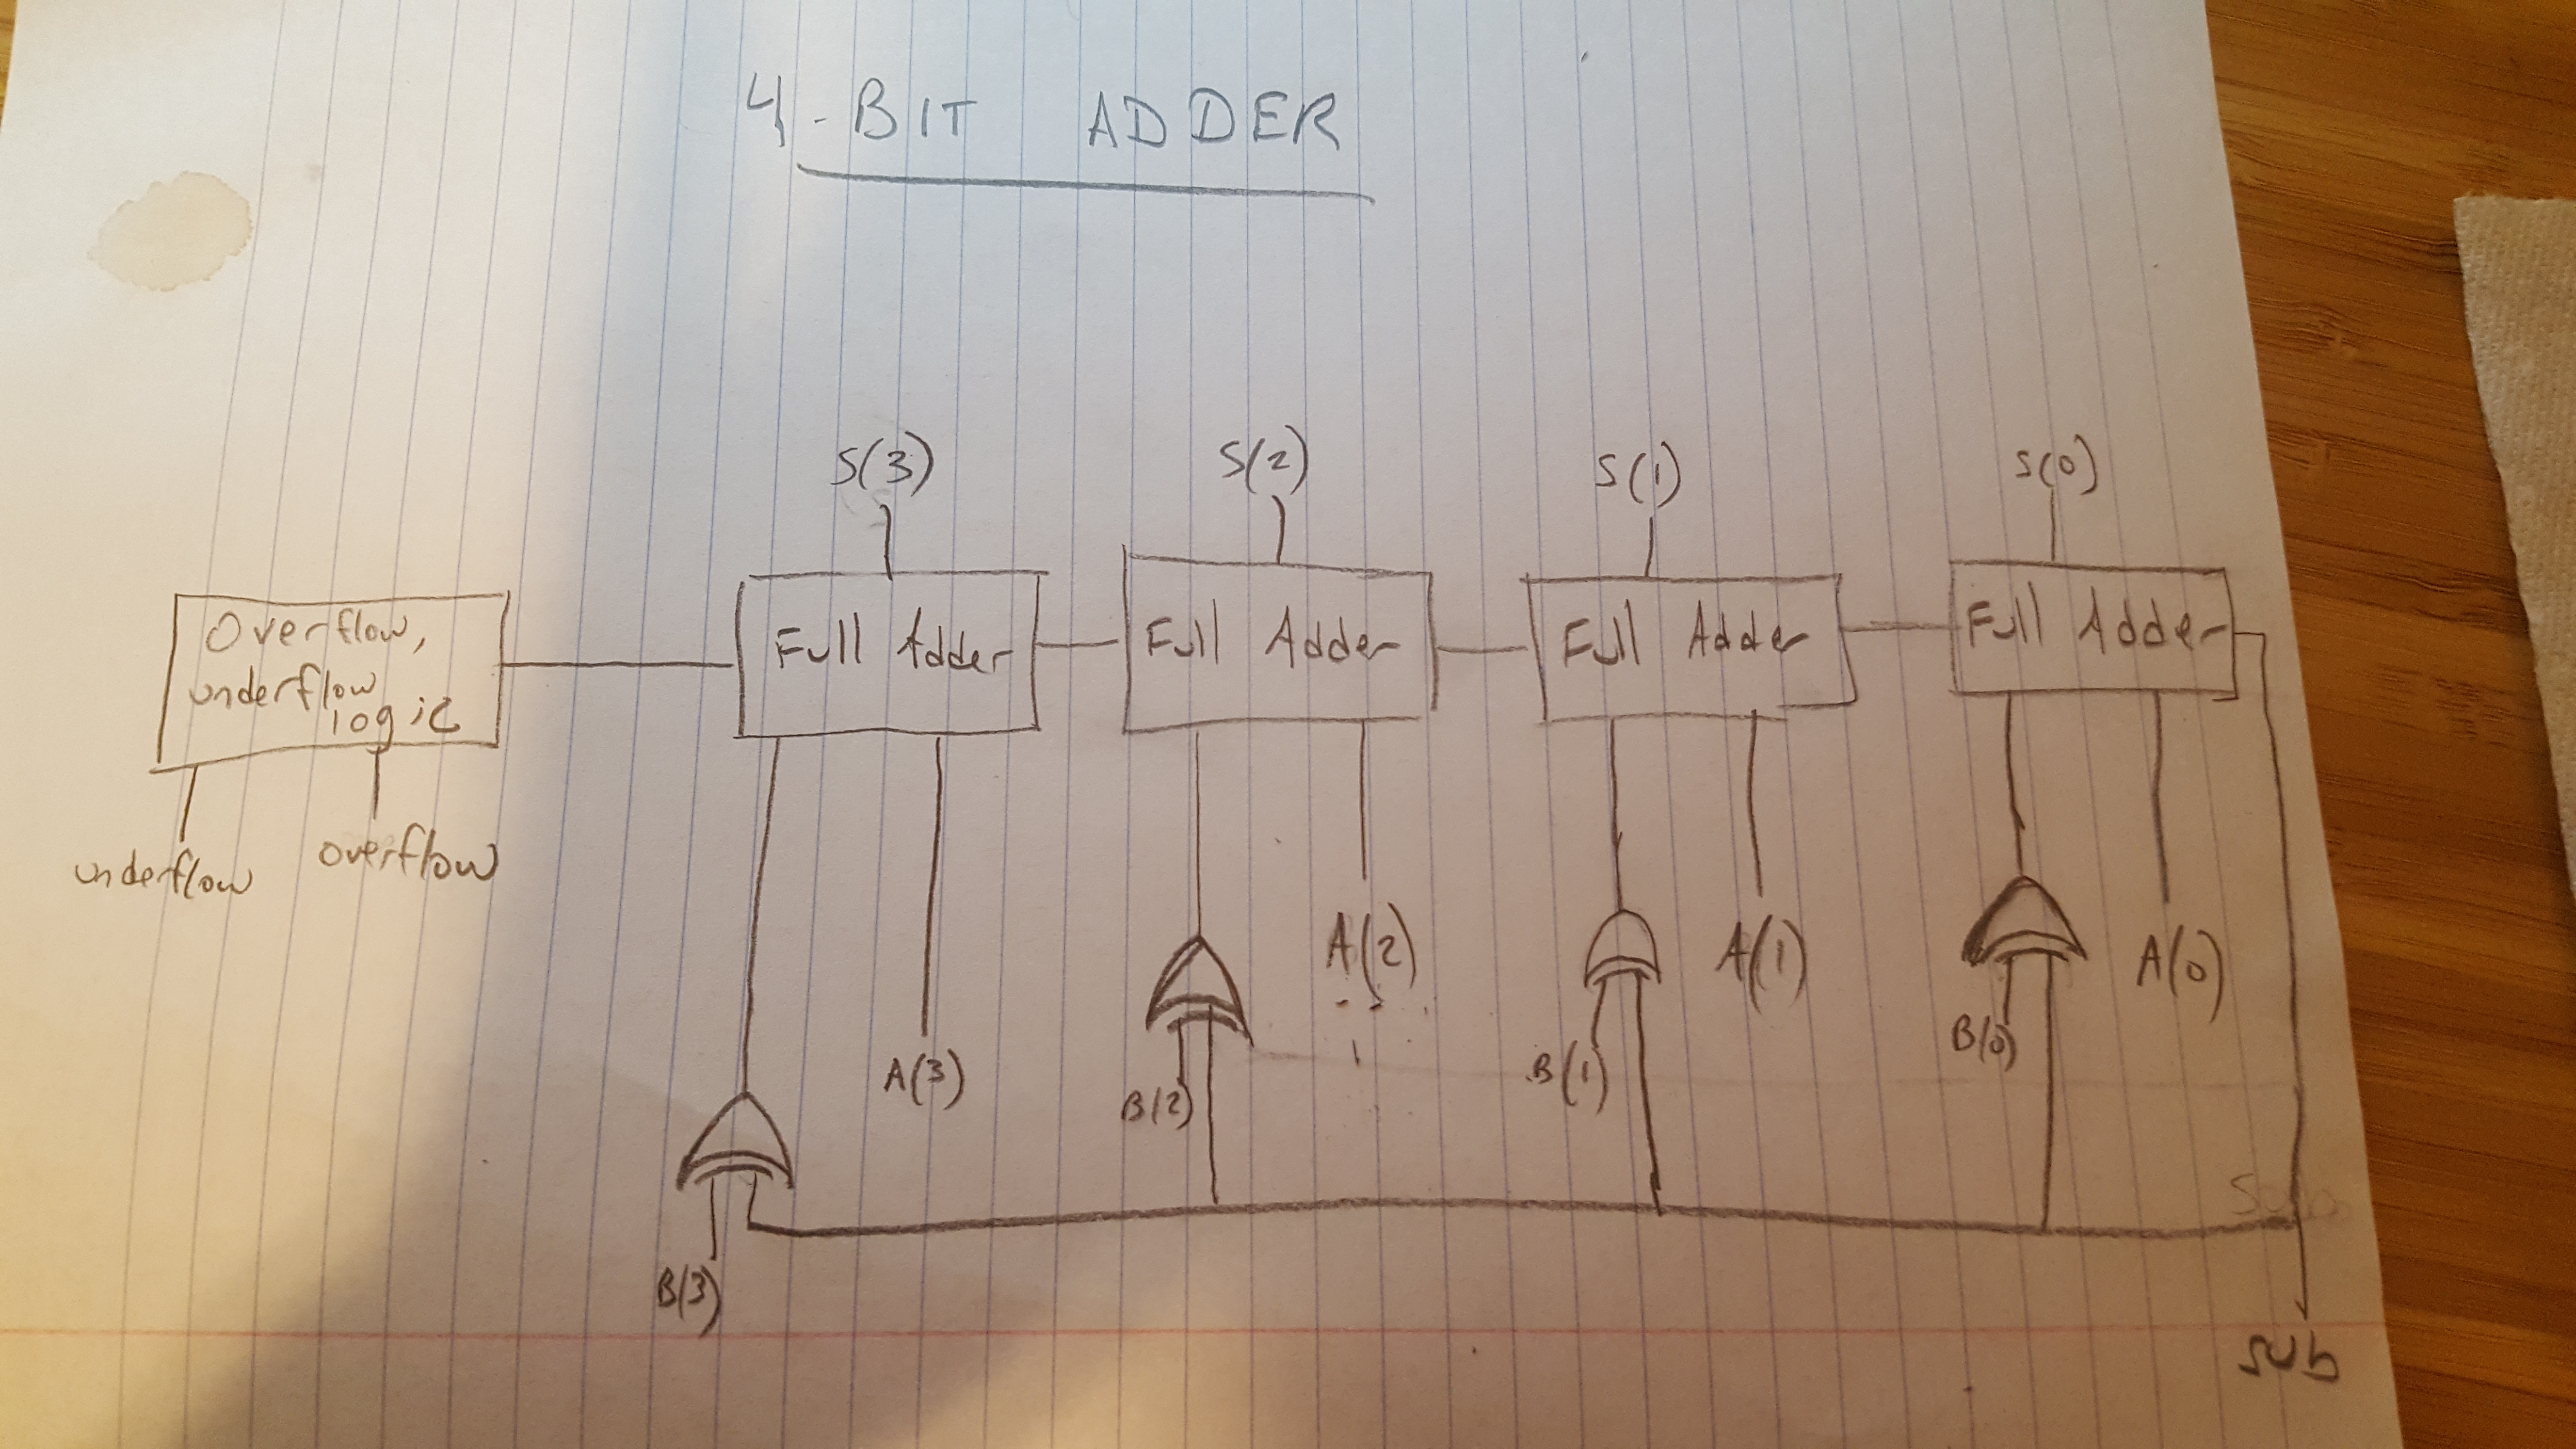 4-BIT ADDER
S(3)
S(2)
S(1)
S(0)
Overflow,
underflow
logic
Full Adder
Full Adder
Full Adder
Full Adder
underflow
overflow
B(3)
A(3)
B(2)
A(2)
B(1)
A(1)
B(0)
A(0)
Sub